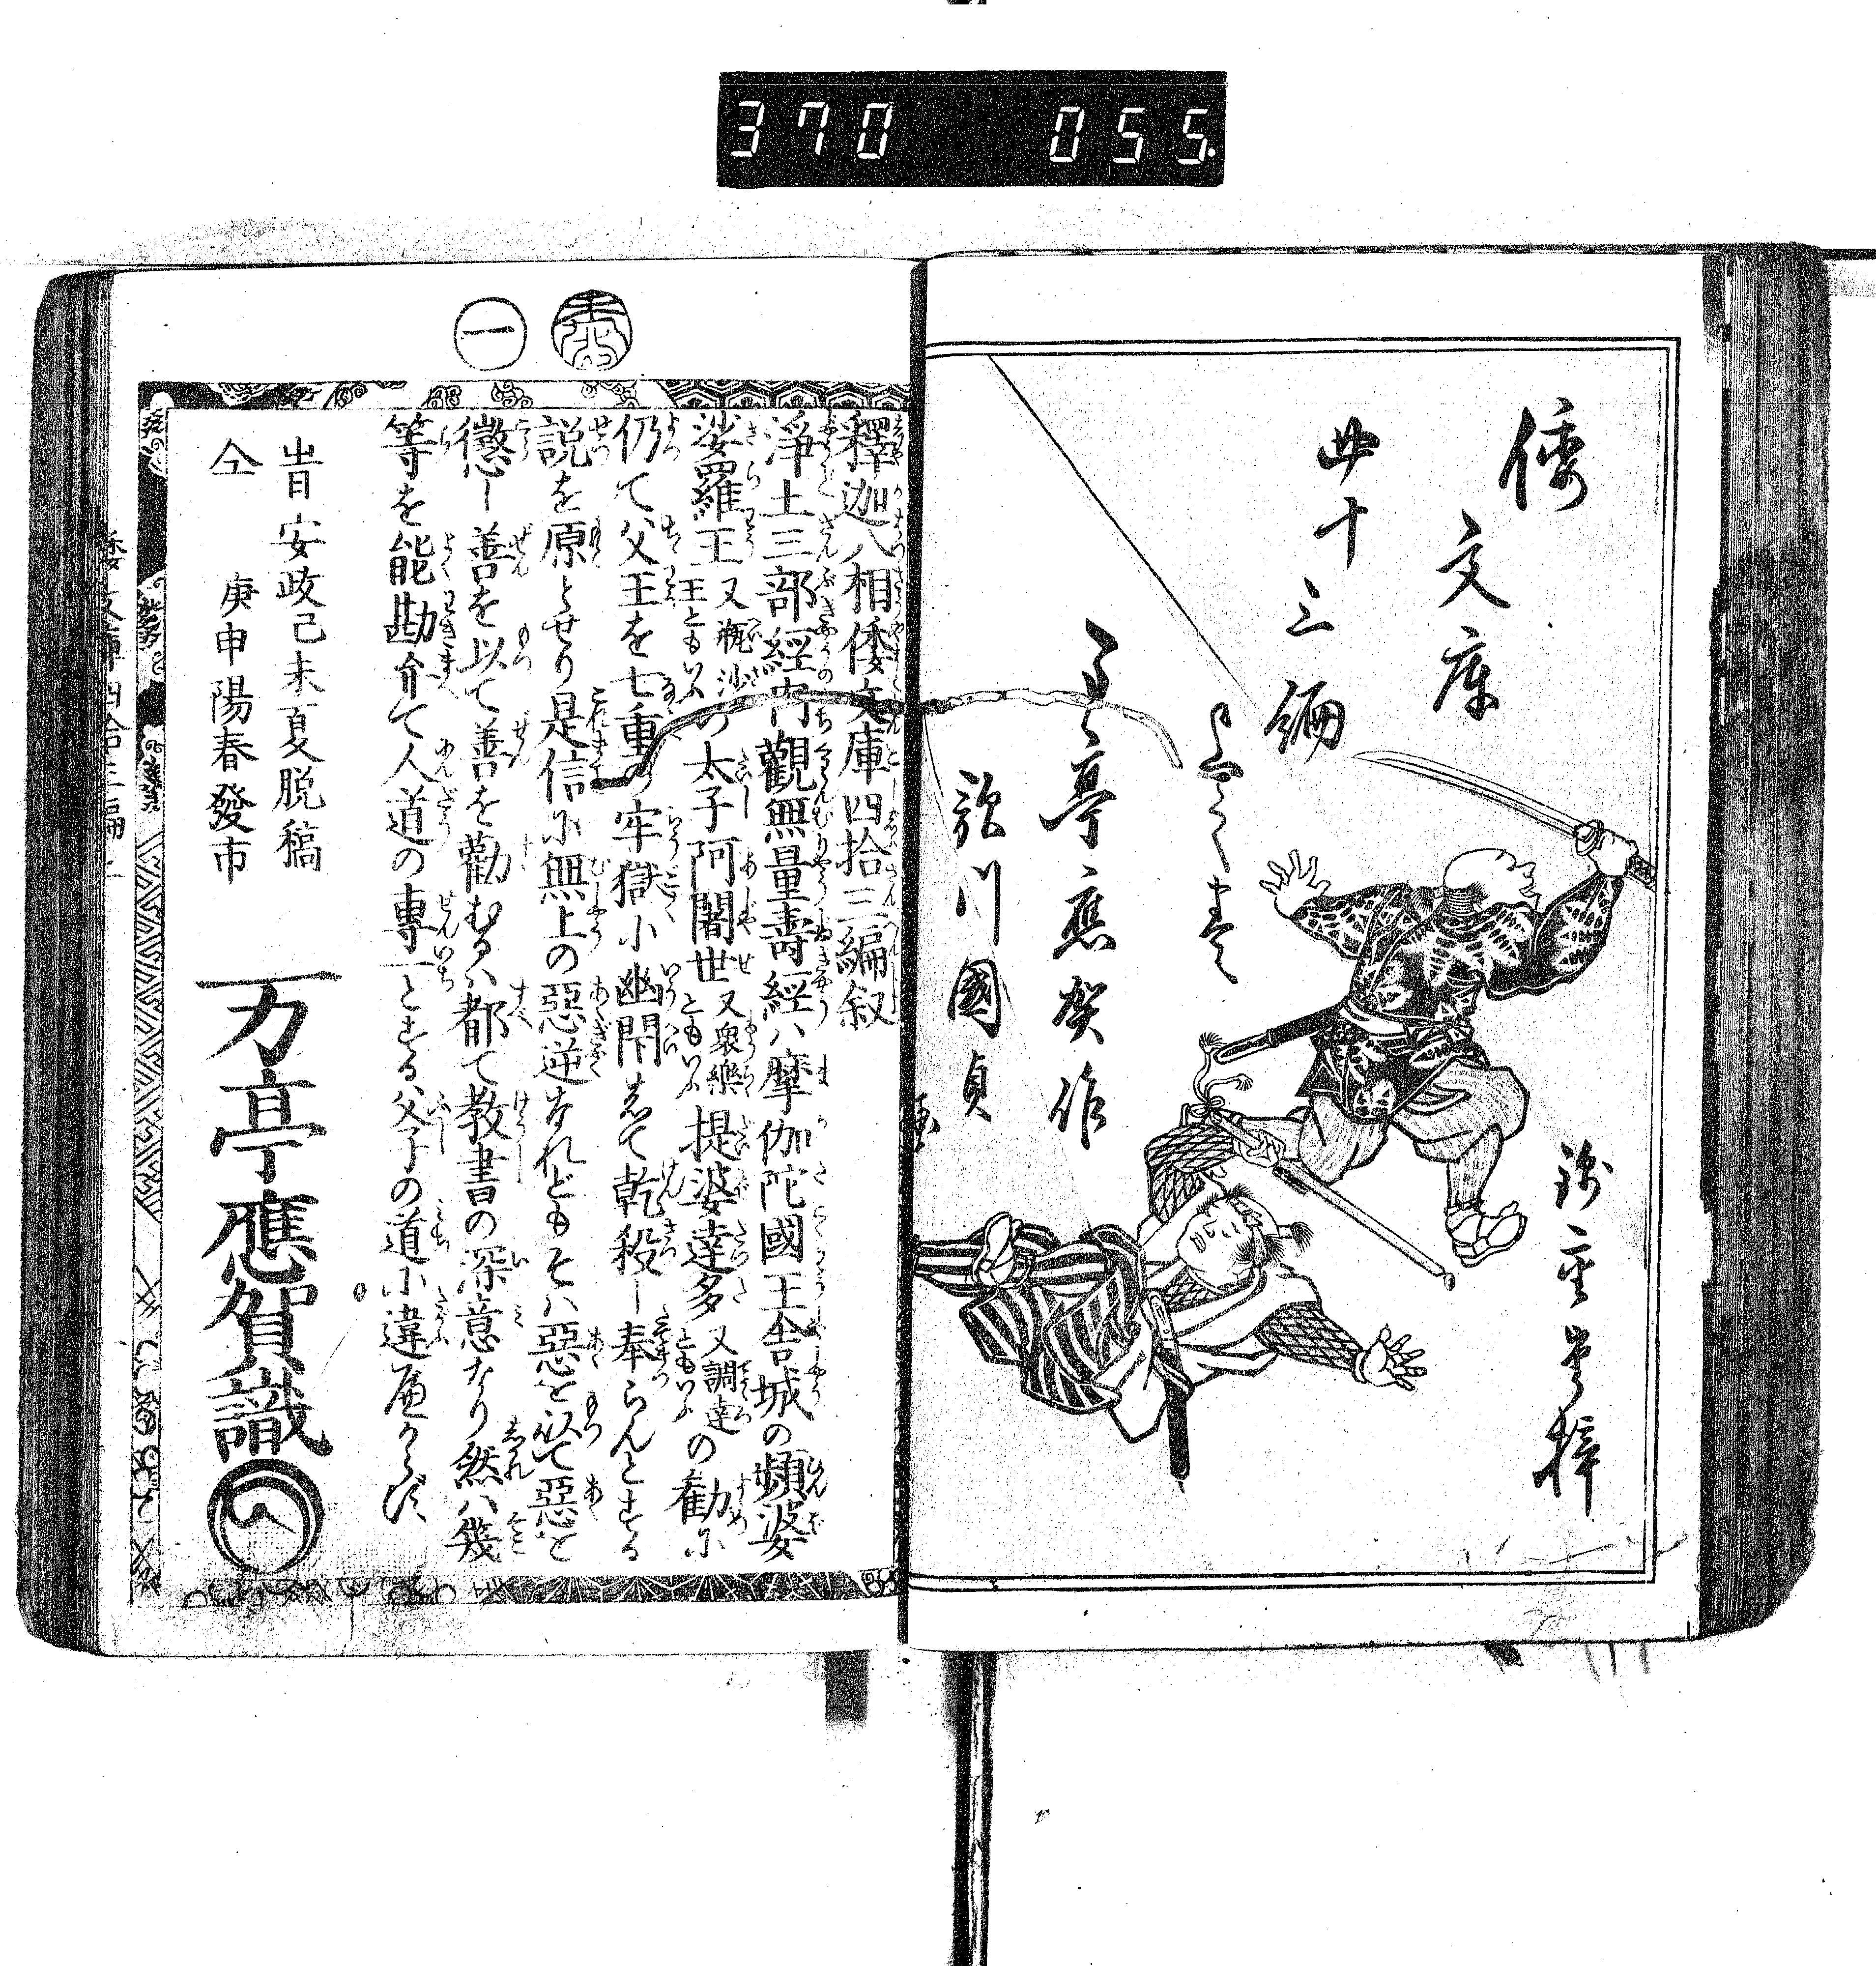 370 055
倭
文庫
四十三編
上のまき
万亭應賀作
歌川國貞画
錦重堂梓
一
釋迦八相倭文庫四拾三編叙
淨土三部經内觀無量壽經ハ摩伽陀國王舎城の頻婆
娑羅王又瓶沙王ともいふの太子阿闍世又衆樂ともいふ提婆達多又調達ともいふの勧に
仍て父王を七重の牢獄に幽閉なして乾殺し奉らんとする
説を原とせり是信に無上の惡逆なれどもそハ惡を以て惡を
懲し善を以て善を勸むるハ都て教書の深意なり然ハ幾
等を能勘弁て人道の專一とする父子の道に違屓からず
旹安政己未夏脱稿
仝庚申陽春發市
万亭應賀識
倭文庫四拾三編